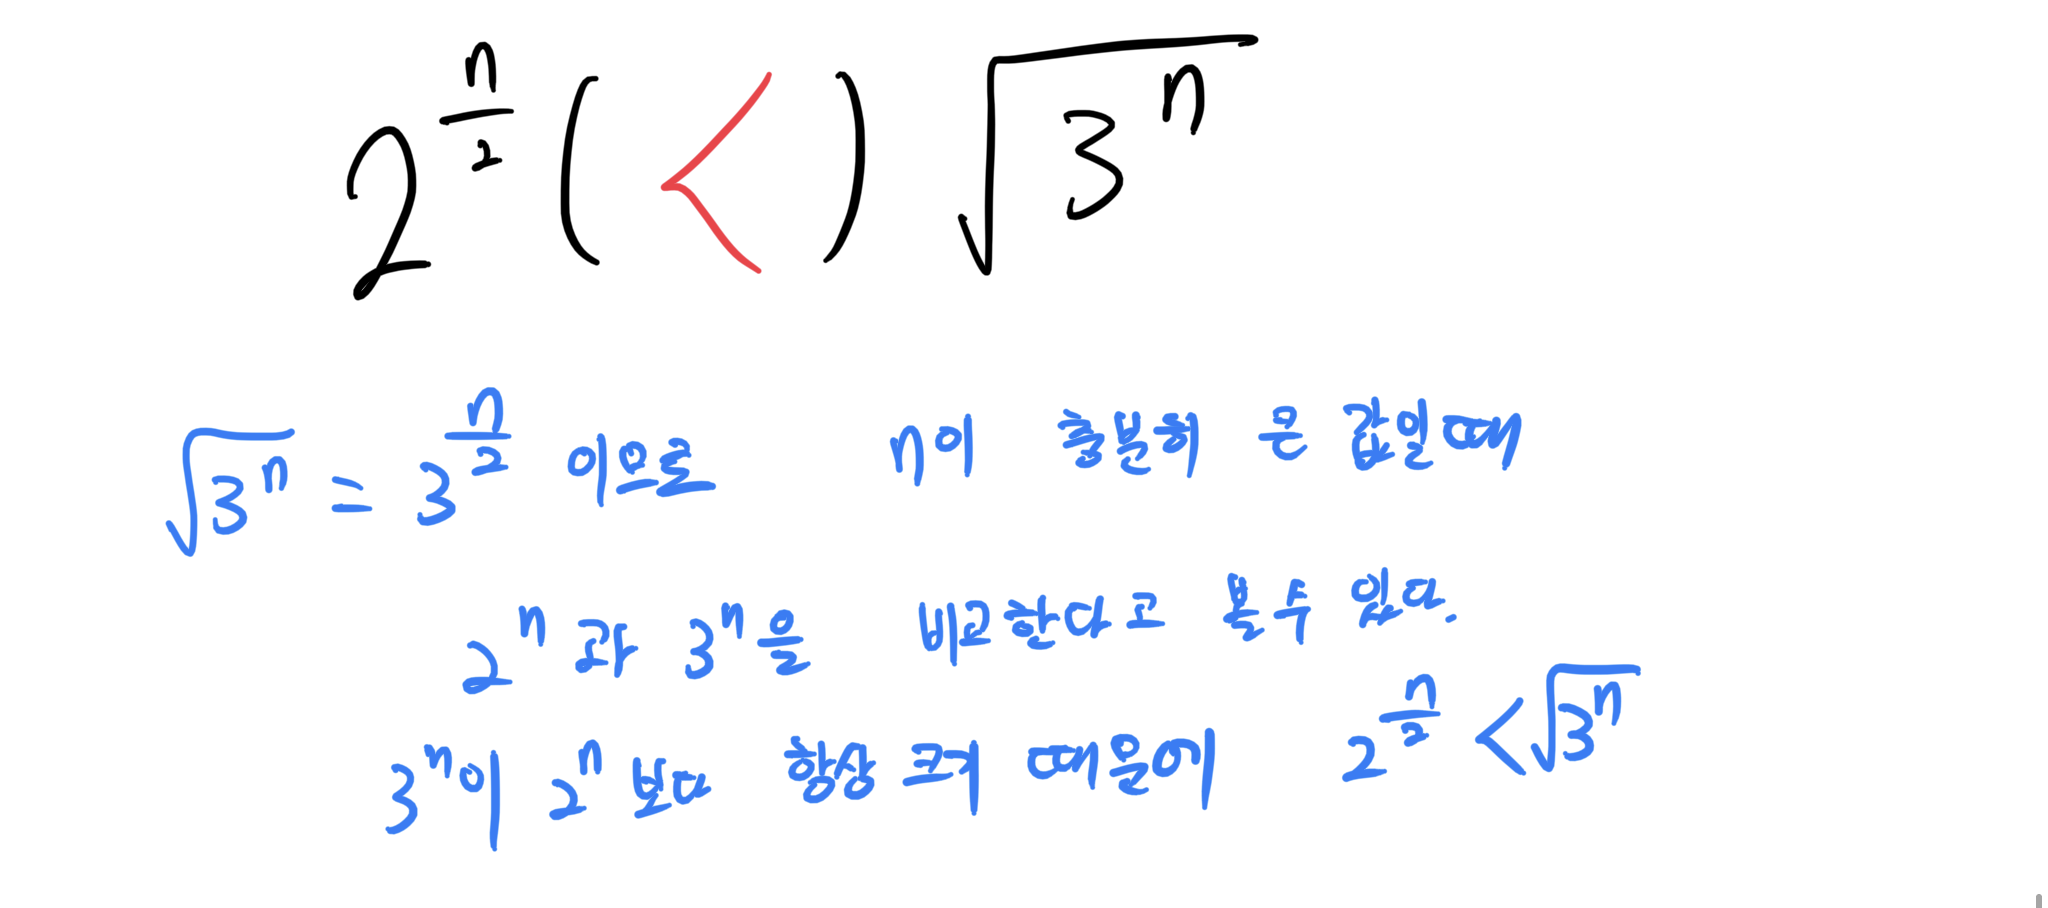 2^{n/2} ( < ) √(3^n)
√(3^n) = 3^{n/2} 이으로 n이 충분히 큰 값일때
2^n과 3^n을 비교한다고 볼수 있다.
3^n이 2^n보다 항상 크기 때문에 2^{n/2} < √(3^n)